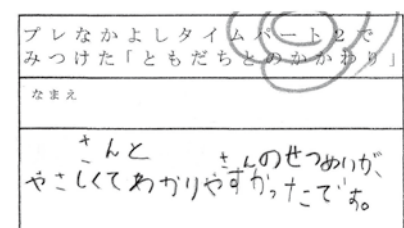 プレなかよしタイムパート2で
みつけた「ともだちとのかかわり」
なまえ
さんと
さんのせつめいが、
やさしくてわかりやすかったです。